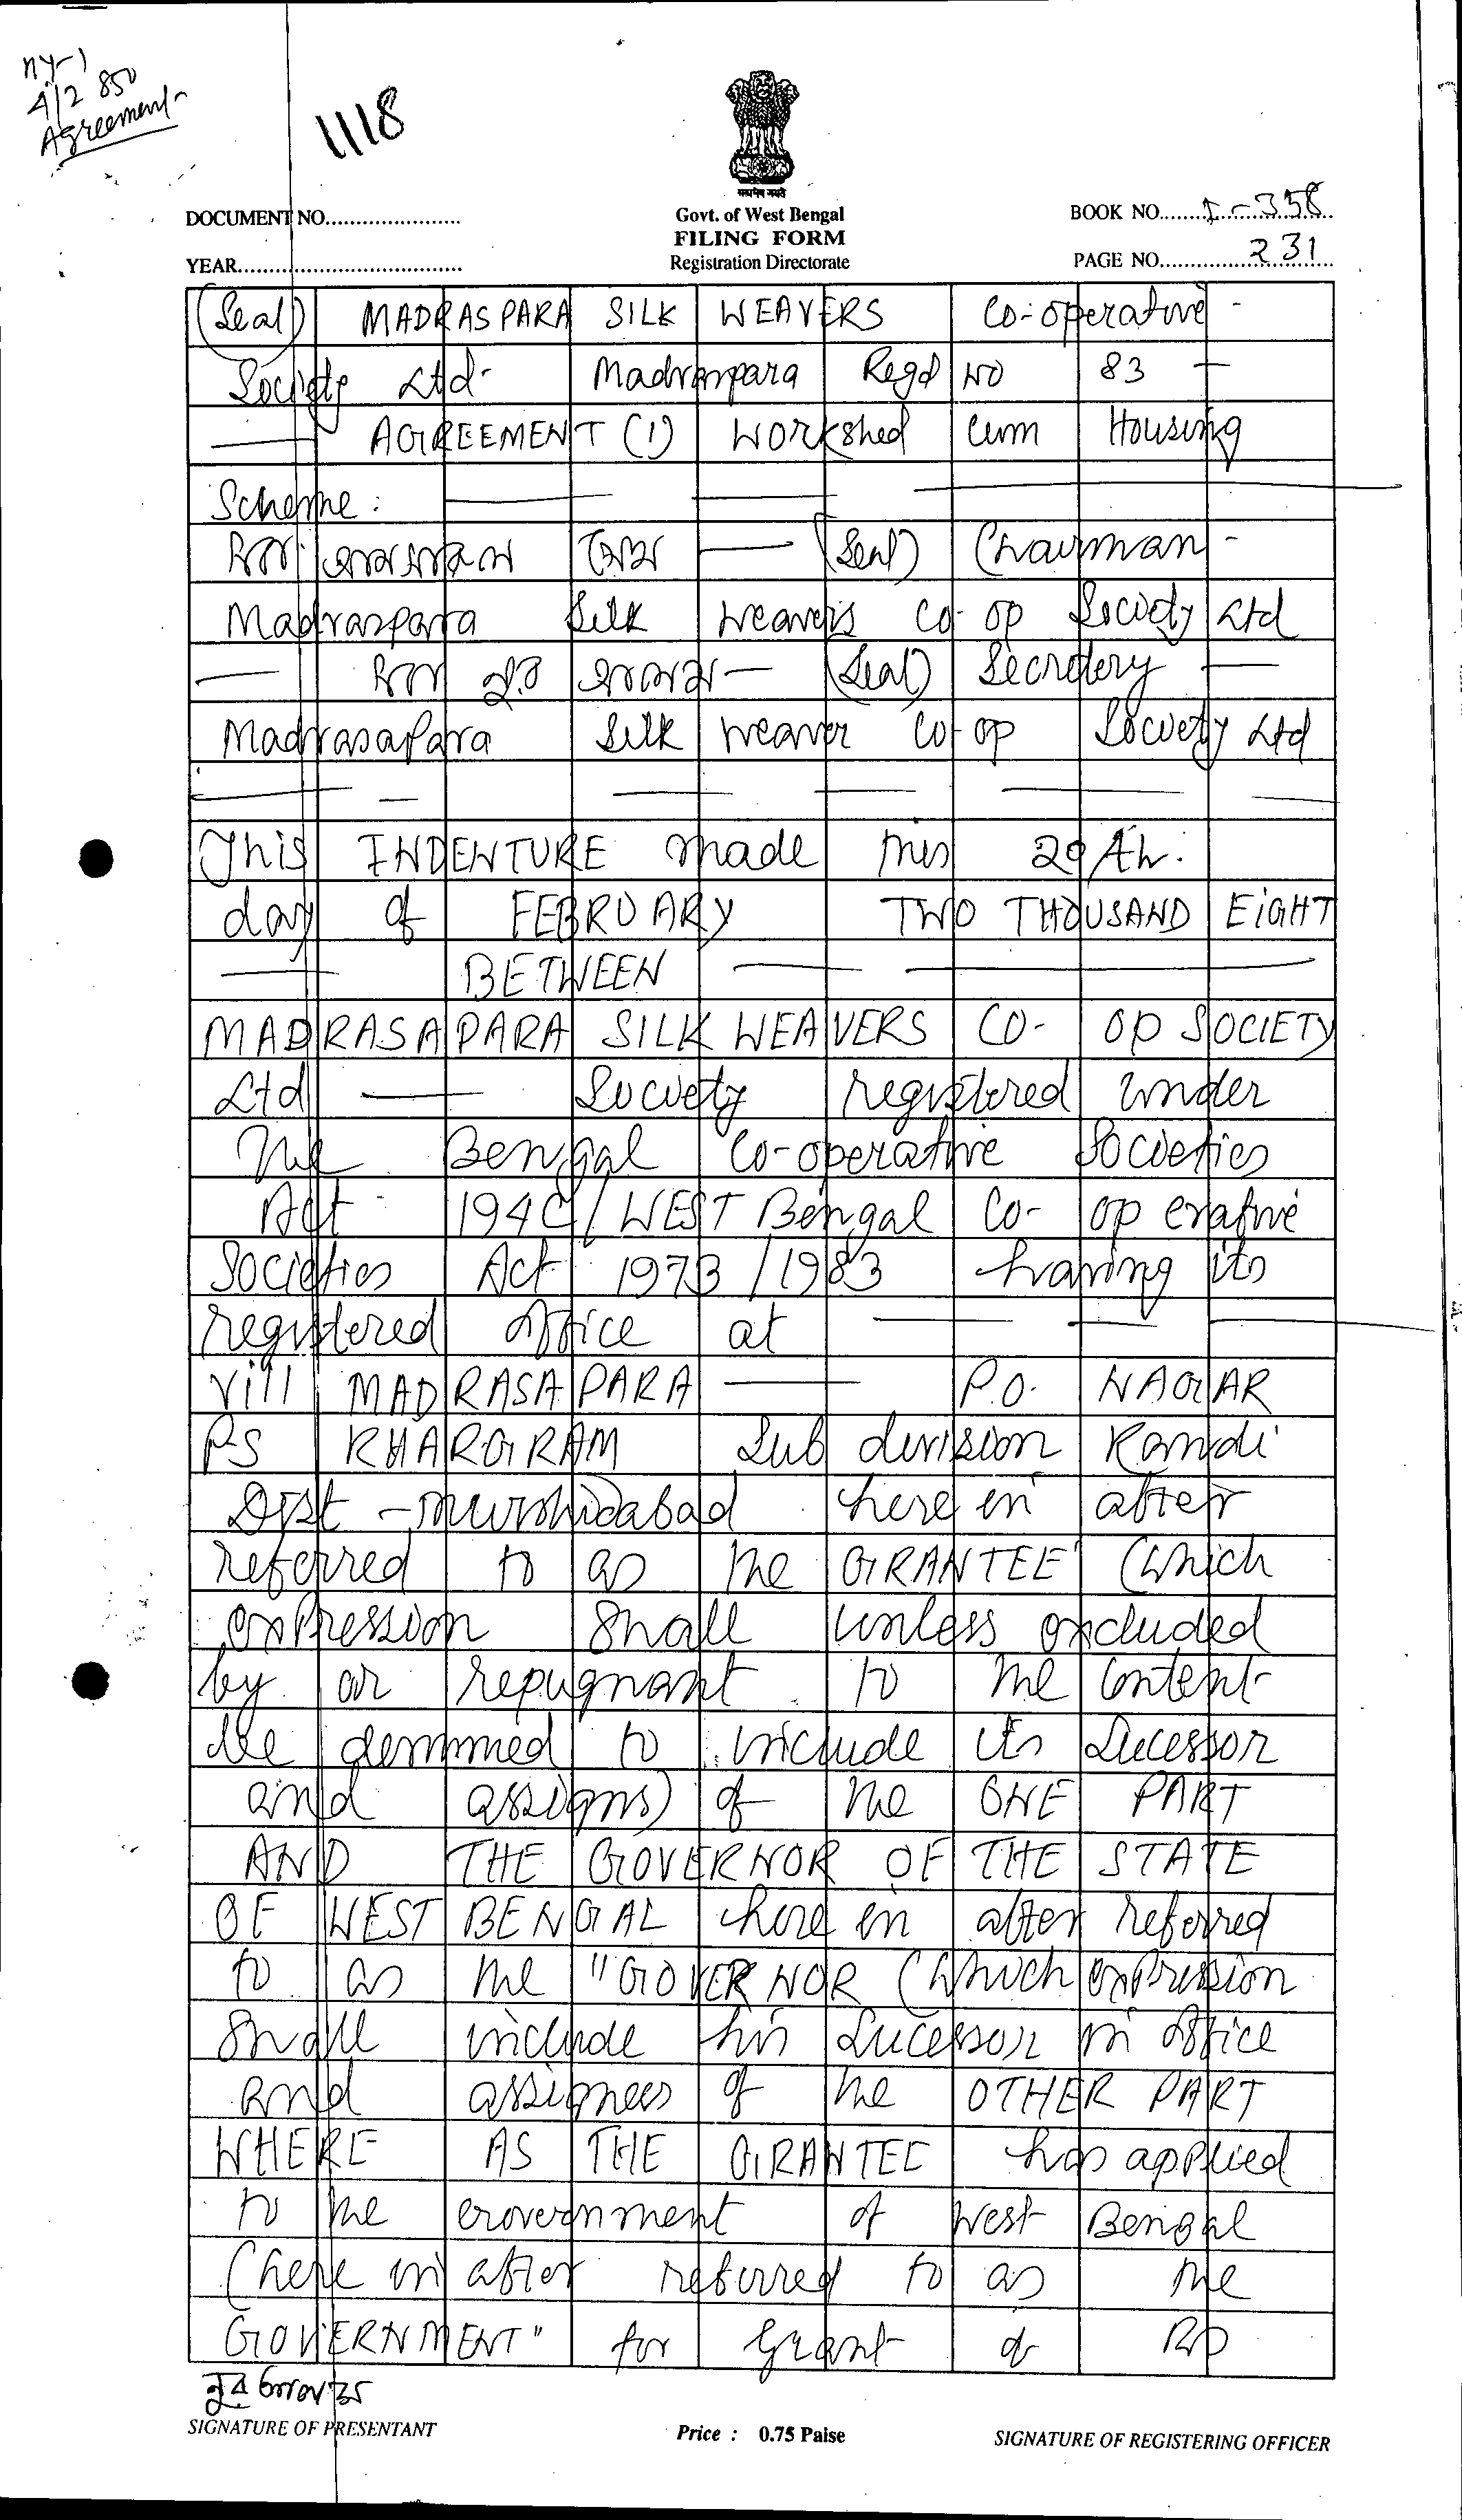 4/2 850
Agreement
1118
सत्यमेव जयते
DOCUMENT NO.....................
Govt. of West Bengal
FILING FORM
Registration Directorate
BOOK NO. I-358
YEAR....................................
PAGE NO. 231
(Seal) MADRASPARA SILK WEAVERS Co-operative -
Society Ltd- Madraspara Regd NO 83 —
— AGREEMENT (1) Workshed Cum Housing
Scheme: — — —
— (Seal) Chairman -
Madraspara Silk weavers Co-op Society Ltd
— (Seal) Secretery —
MadrasaPara Silk weaver Co-op Society Ltd
This INDENTURE made this 29th.
day of FEBRUARY TWO THOUSAND EIGHT
— BETWEEN — —
MADRASAPARA SILK WEAVERS CO- OP SOCIETY
Ltd — Society registered under
The Bengal Co-operative Societies
Act 1940/WEST Bengal Co- operative
Societies Act 1973/1983 having its
registered office at — — —
Vill MADRASAPARA — P.O. NAGAR
PS KHARGRAM Sub division Kandi
Dist - Murshidabad here in after
referred to as the GRANTEE (which
expression shall unless excluded
by or repugnant to the content
be demmed to include its Sucessor
and assigns) of the ONE PART
AND THE GOVERNOR OF THE STATE
OF WEST BENGAL here in after referred
to as the "GOVERNOR (which expression
shall include his Sucessor in office
and assignees of the OTHER PART
WHERE AS THE GRANTEE has applied
to the Government of West Bengal
(here in after referred to as the
GOVERNMENT" for Grant of Rs
SIGNATURE OF PRESENTANT
Price : 0.75 Paise
SIGNATURE OF REGISTERING OFFICER